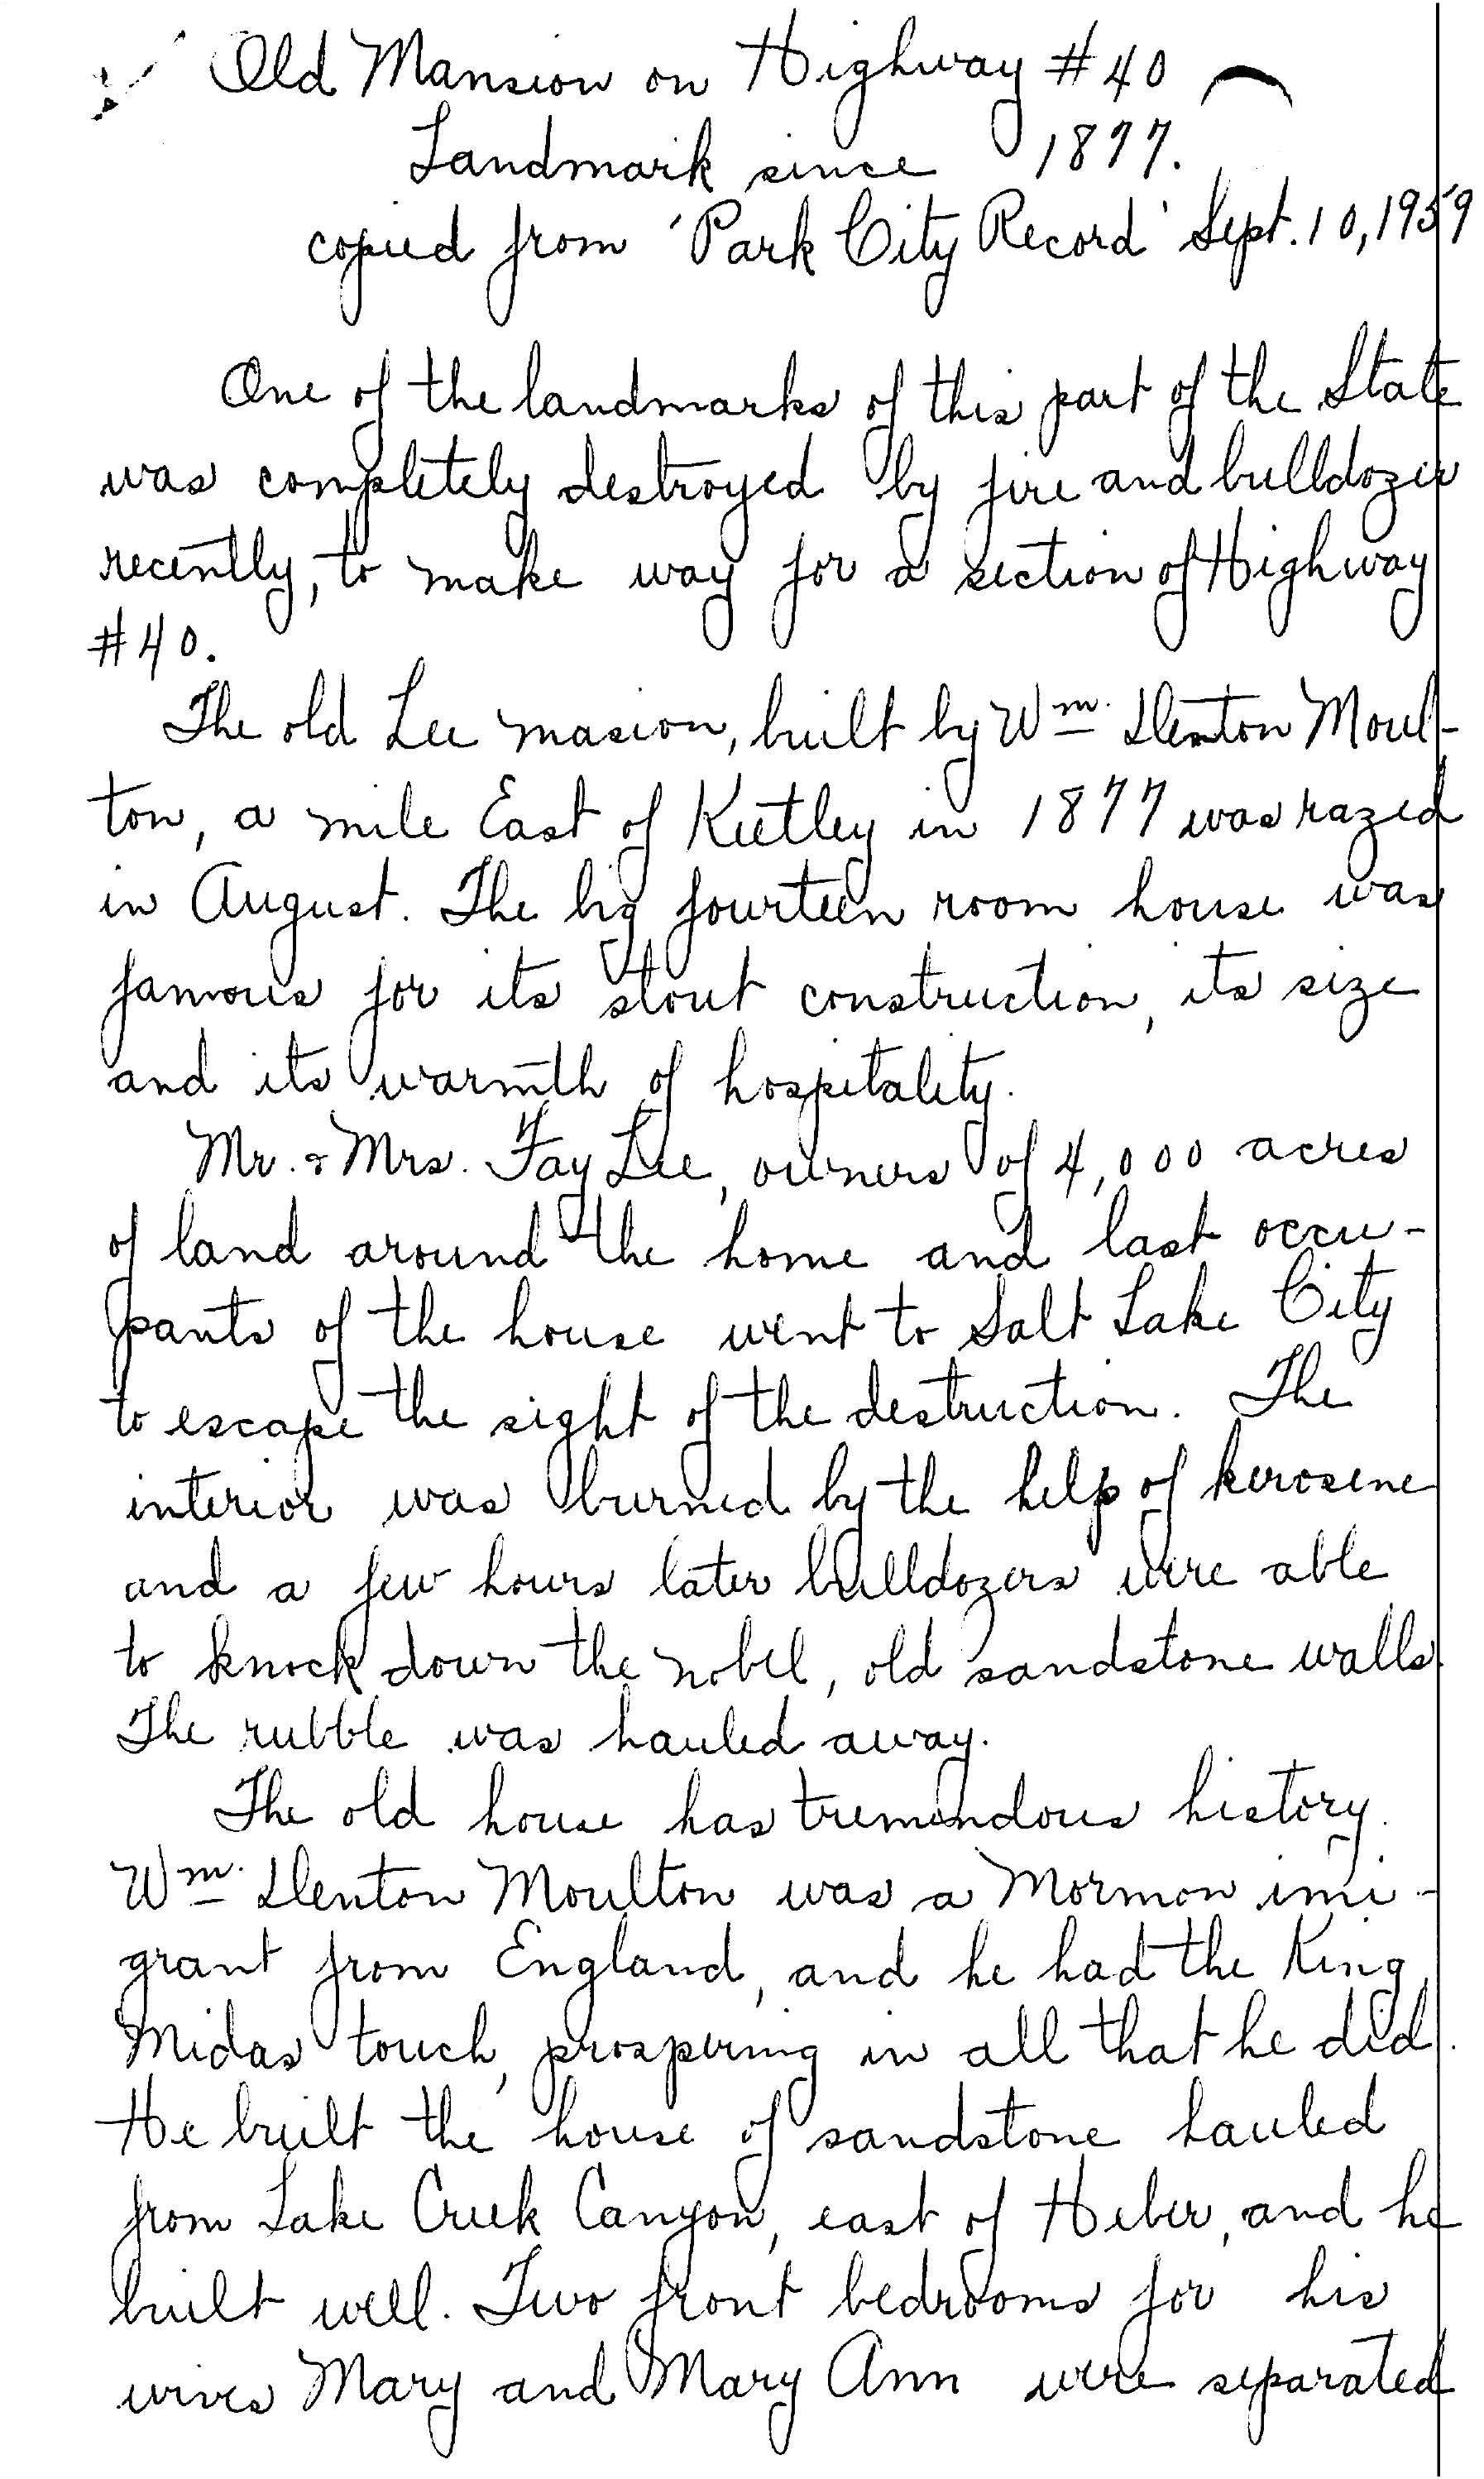 Old Mansion on Highway #40
Landmark since 1877.
copied from 'Park City Record' Sept. 10, 1959
One of the landmarks of this part of the State
was completely destroyed by fire and bulldozer
recently, to make way for a section of Highway
#40.
The old Lee masion, built by Wm. Denton Moul-
ton, a mile East of Keetley in 1877 was razed
in August. The big fourteen room house was
famous for its stout construction, its size
and its warmth of hospitality.
Mr. & Mrs. Fay Lee, owners of 4,000 acres
of land around the home and last occu-
pants of the house went to Salt Lake City
to escape the sight of the destruction. The
interior was burned by the help of kerosene
and a few hours later bulldozers were able
to knock down the nobel, old sandstone walls.
The rubble was hauled away.
The old house has tremendous history.
Wm. Denton Moulton was a Mormon imi-
grant from England, and he had the King
Midas touch, prospering in all that he did.
He built the house of sandstone hauled
from Lake Creek Canyon, east of Heber, and he
built well. Two front bedrooms for his
wives Mary and Mary Ann were separated